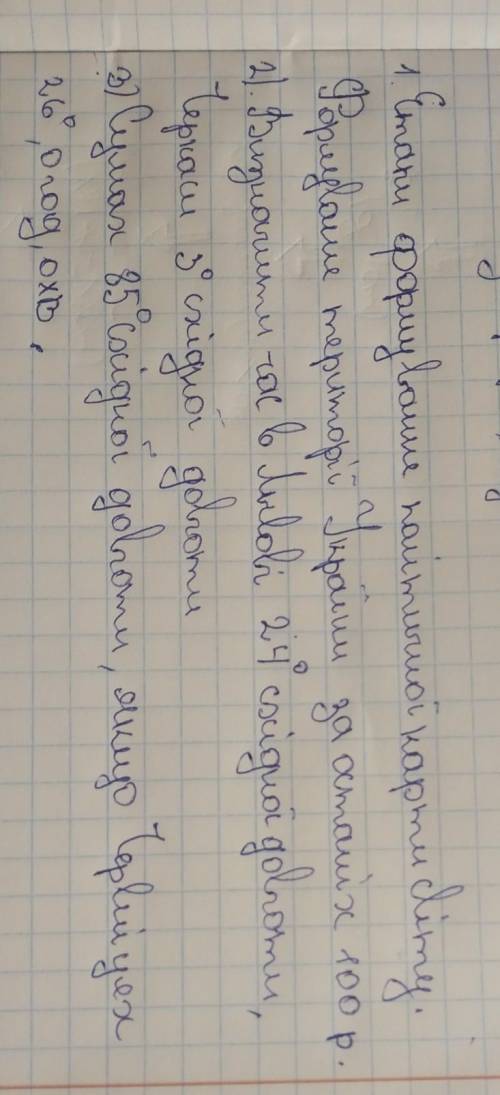 1. Етапи формування політичної карти світу.
Формування території України за останніх 100 р.
2). Визначити час в Львові 24° східної довготи,
Черкаси 3° східної довготи
3) Сумах 35° східної довготи, якщо Чернівцях
26°, 0 год, 0 хв.